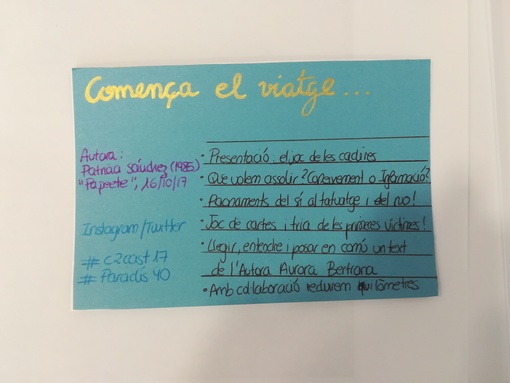 Comença el viatge...
Autora:
Patricia Sánchez (1985)
"Papeete", 16/10/17
Instagram/Twitter
# c2cast17
# Paradís 40
• Presentació: el joc de les cadires
• Què volem assolir? Coneixement o Informació?
• Raonaments del sí al tatuatge i del no!
• Joc de cartes i tria de les primeres víctimes!
• Llegir, entendre i posar en comú un text
de l'Autora Aurora Bertrana
• Amb col·laboració reduirem quilòmetres